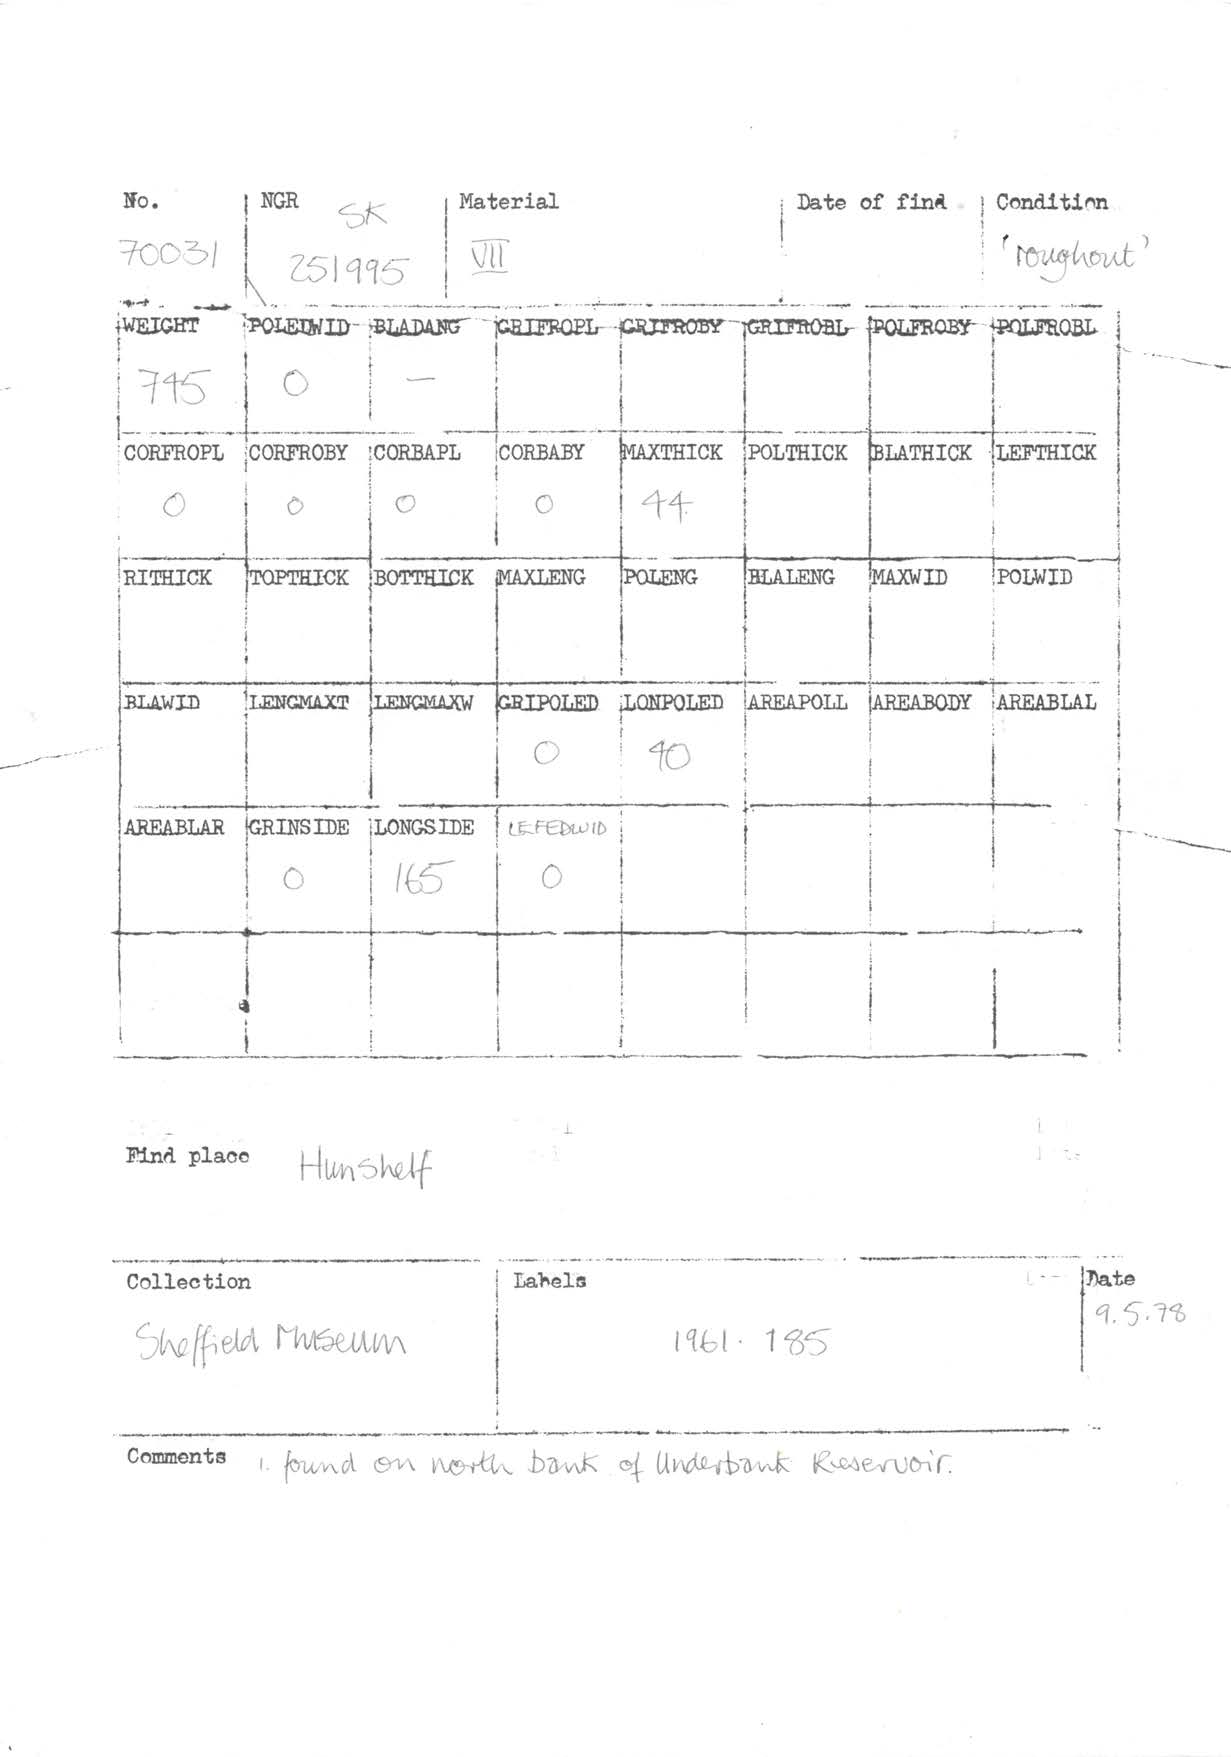 No. NGR SK Material Date of find Condition
70031 251995 VII 'roughout'
WEIGHT POLEDWID BLADANG GRIFROPL GRIFROBY GRIFROBL POLFROBY POLFROBL
745 0 —
CORFROPL CORFROBY CORBAPL CORBABY MAXTHICK POLTHICK BLATHICK LEFTHICK
0 0 0 0 44
RITHICK TOPTHICK BOTTHICK MAXLENG POLENG BLALENG MAXWID POLWID
BLAWID LENGMAXT LENGMAXW GRIPOLED LONPOLED AREAPOLL AREABODY AREABLAL
0 40
AREABLAR GRINSIDE LONGSIDE LEFEDWID
0 165 0
Find place Hunshelf
Collection Labels Date
9.5.78
Sheffield Museum 1961.185
Comments 1. found on north bank of Underbank Reservoir.